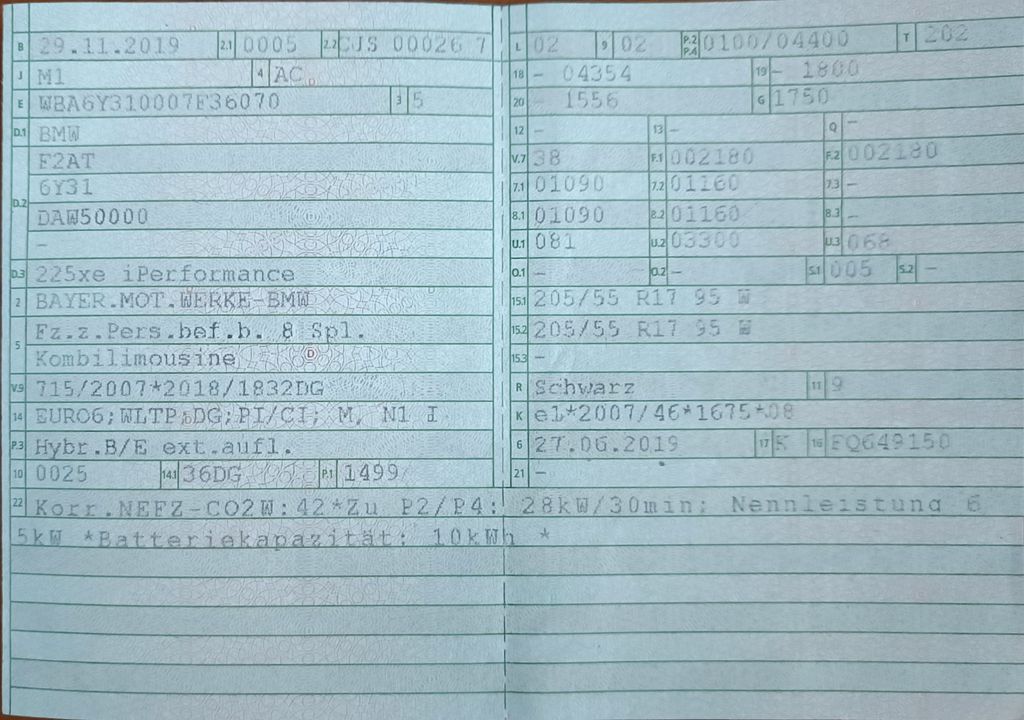 B 29.11.2019 2.1 0005 2.2 CJS 00026 7
J M1 4 AC
E WBA6Y310007F36070 3 5
D.1 BMW
D.2 F2AT
6Y31
DAW50000
–
D.3 225xe iPerformance
2 BAYER.MOT.WERKE-BMW
5 Fz.z.Pers.bef.b. 8 Spl.
Kombilimousine
V.9 715/2007*2018/1832DG
14 EURO6;WLTP;DG;PI/CI; M, N1 I
P.3 Hybr.B/E ext.aufl.
10 0025 14.1 36DG P.1 1499
L 02 9 02 P.2 P.4 0100/04400 T 202
18 – 04354 19 – 1800
20 – 1556 G 1750
12 – 13 – Q –
V.7 38 F.1 002180 F.2 002180
7.1 01090 7.2 01160 7.3 –
8.1 01090 8.2 01160 8.3 –
U.1 081 U.2 03300 U.3 068
O.1 – O.2 – S.1 005 S.2 –
15.1 205/55 R17 95 W
15.2 205/55 R17 95 W
15.3 –
R Schwarz 11 9
K e1*2007/46*1675*08
6 27.06.2019 17 K 16 FQ649150
21 –
22 Korr.NEFZ-CO2W:42*Zu P2/P4: 28kW/30min; Nennleistung 6
5kW *Batteriekapazität: 10kWh *